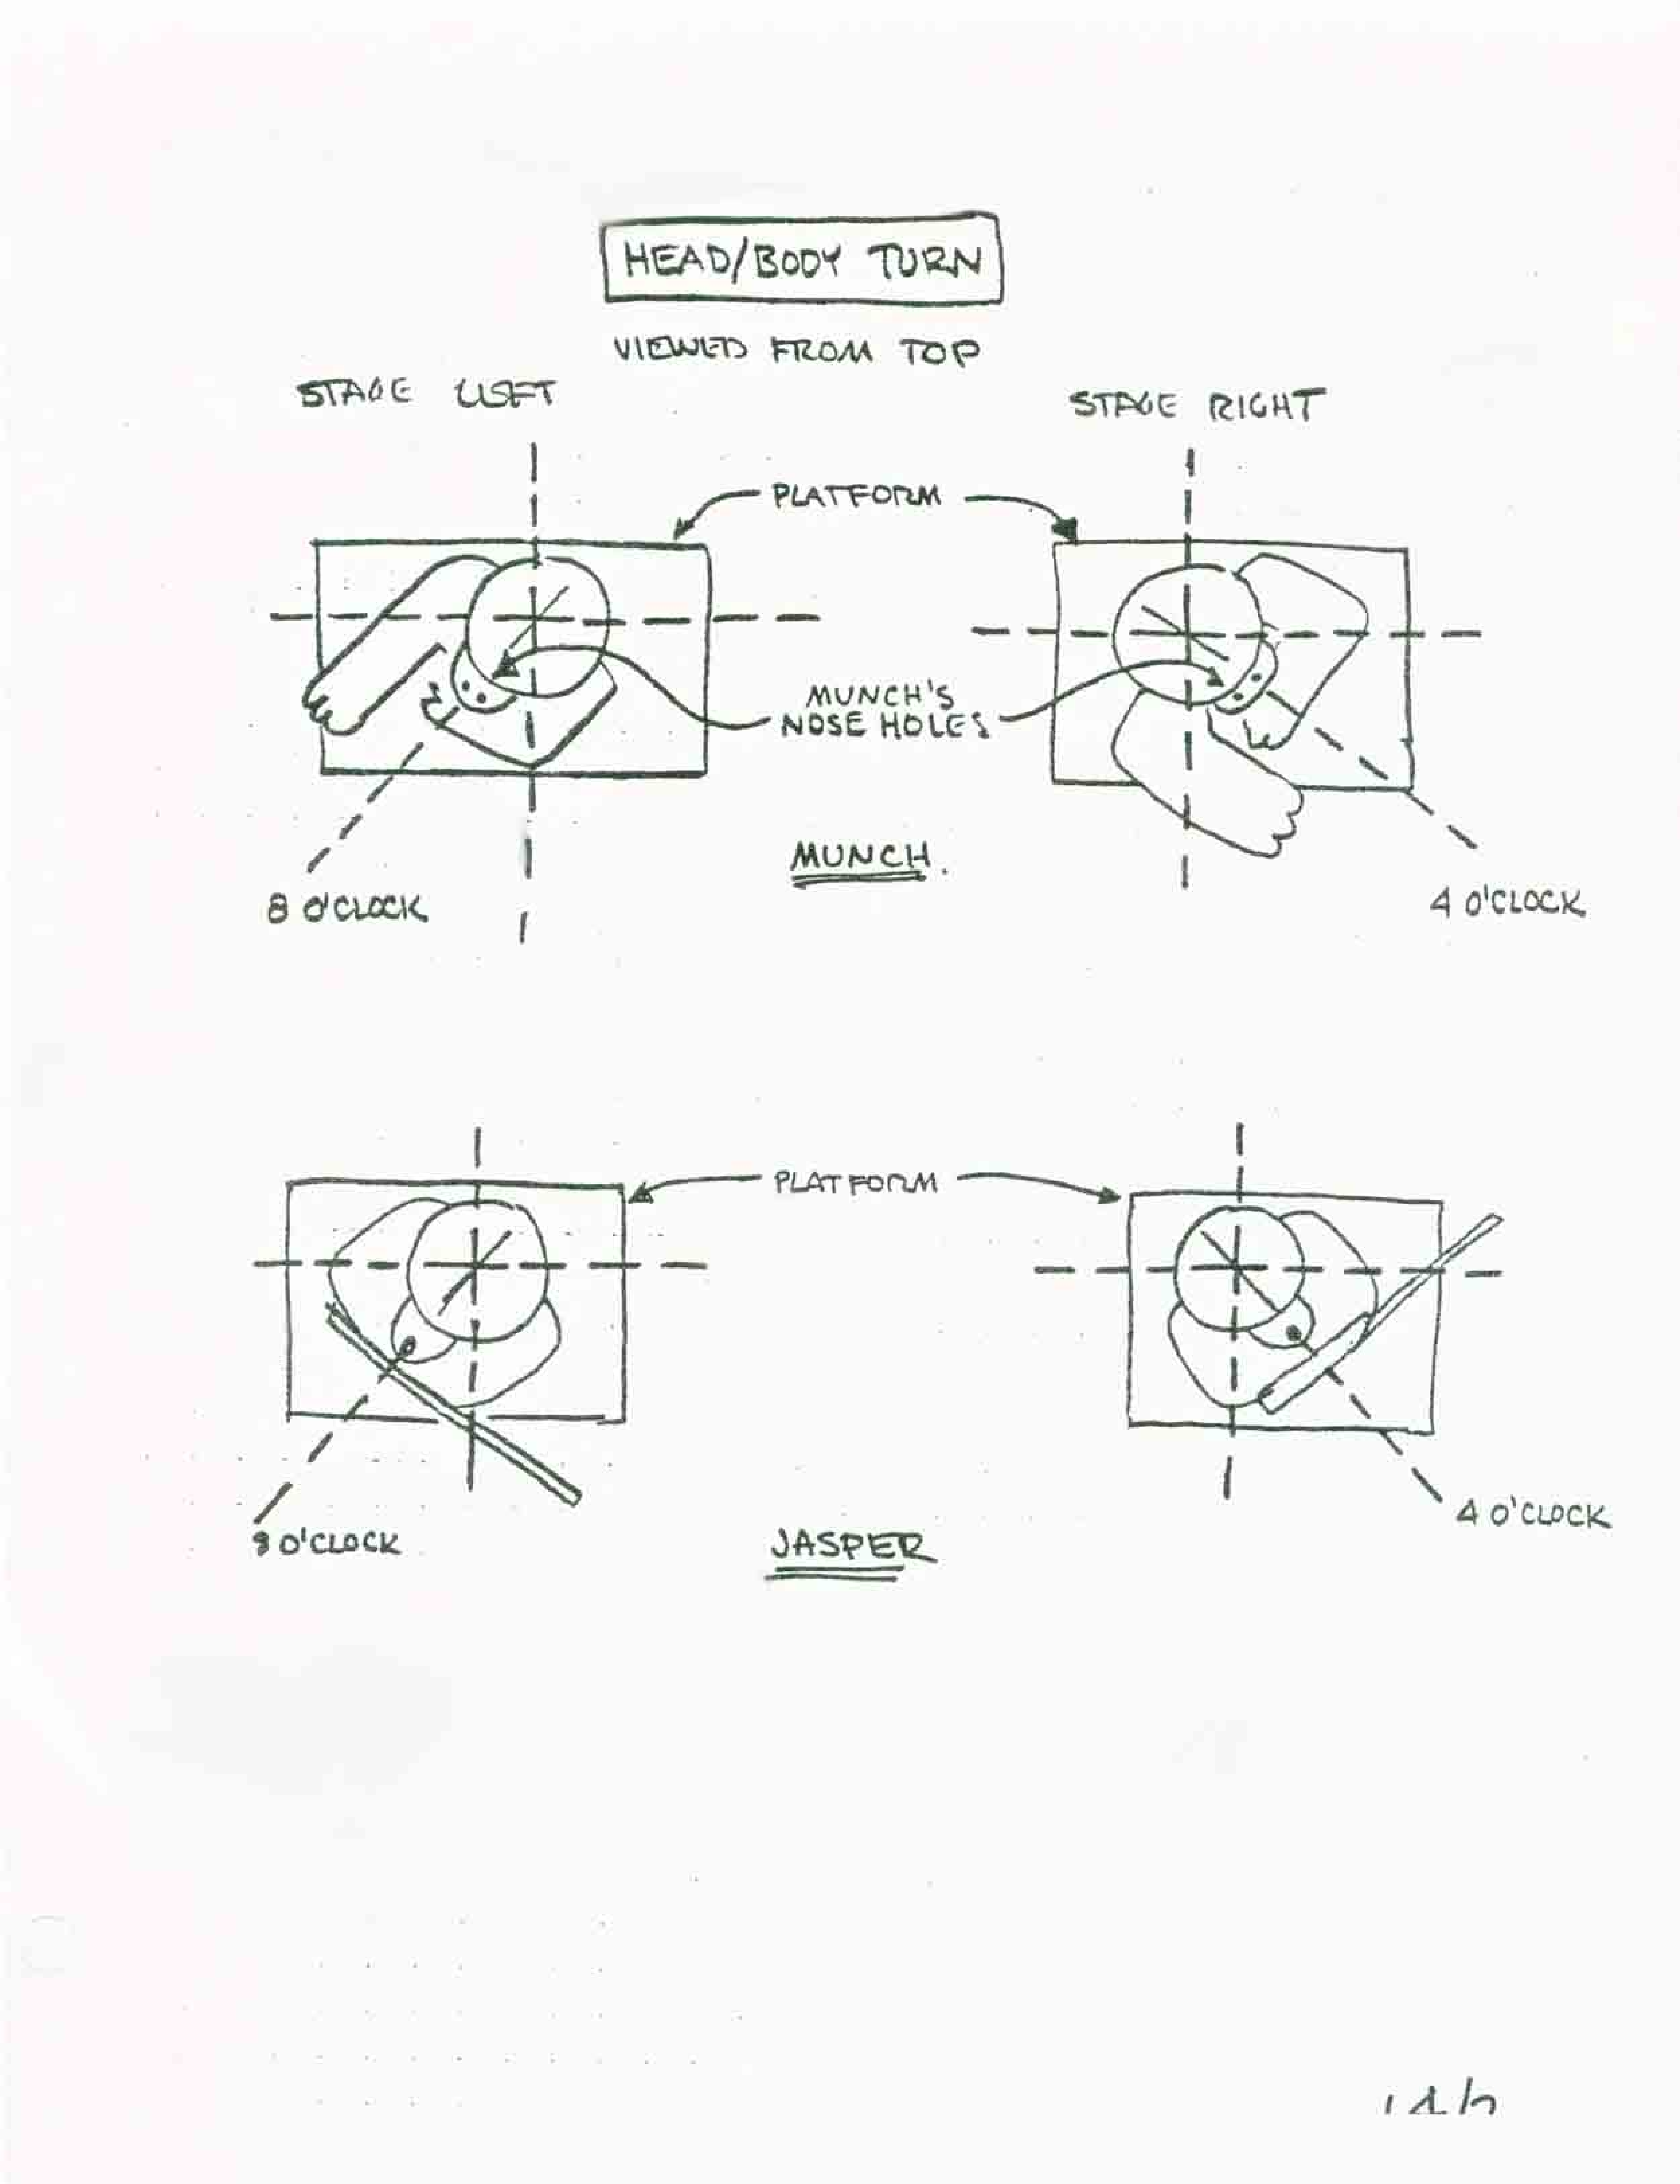 HEAD/BODY TURN
VIEWED FROM TOP
STAGE LEFT
STAGE RIGHT
PLATFORM
MUNCH'S
NOSE HOLES
MUNCH.
8 O'CLOCK
4 O'CLOCK
PLATFORM
4 O'CLOCK
O'CLOCK
JASPER